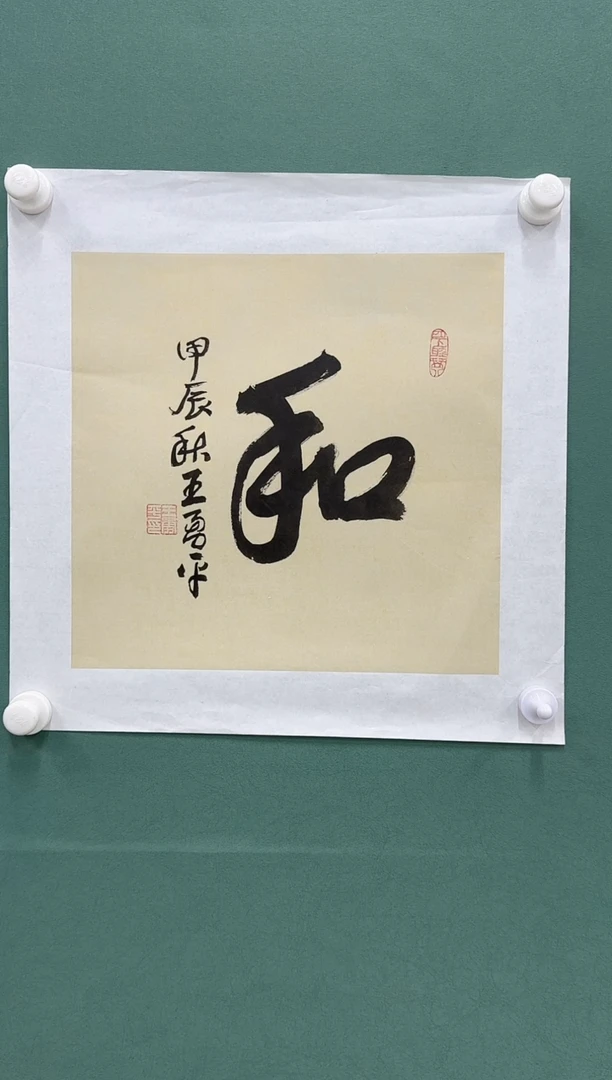 和
甲辰秋王勇平